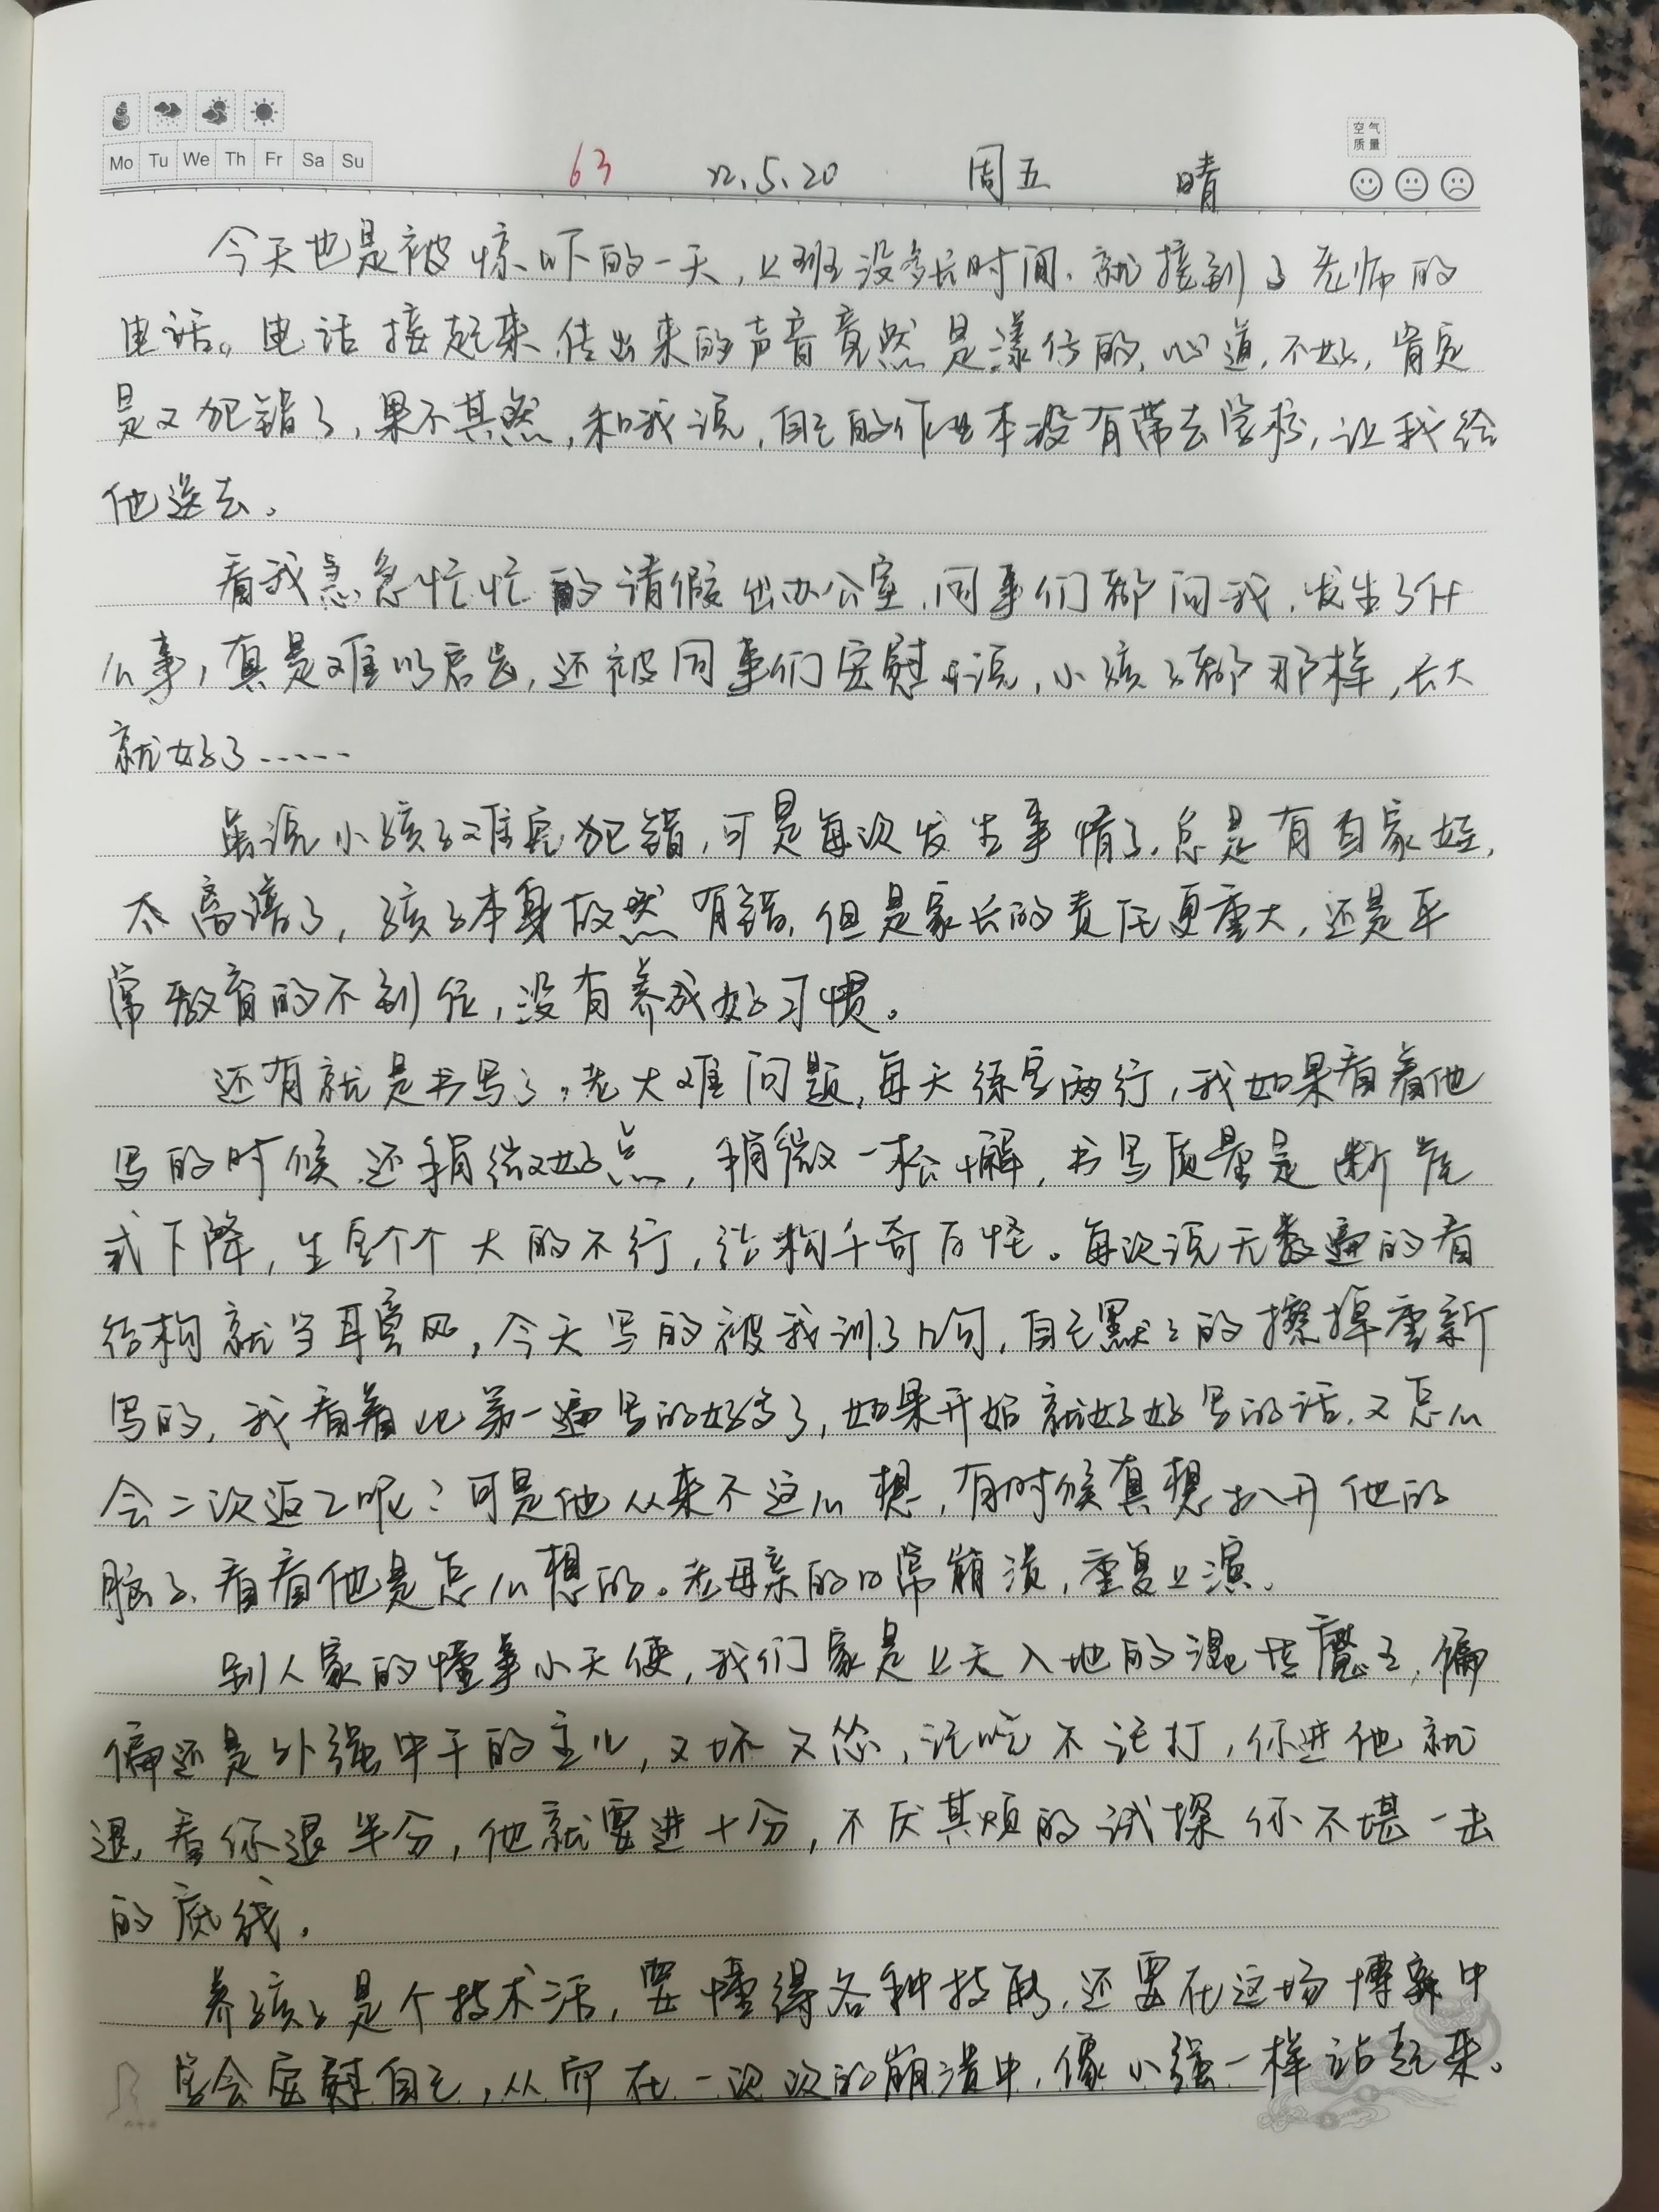 Mo Tu We Th Fr Sa Su
63 22.5.20 周五 晴
空气
质量
今天也是被惊吓的一天,上班没多长时间,就接到了老师的
电话。电话接起来,传出来的声音竟然是漾仔的,心道,不好,肯定
是又犯错了,果不其然,和我说,自己的作业本没有带去学校,让我给
他送去。
看我急急忙忙的请假出办公室,同事们都问我,发生了什
么事,真是难以启齿,还被同事们安慰说,小孩子都那样,长大
就好了……
虽说小孩子难免犯错,可是每次发生事情了,总是有自家娃,
太离谱了,孩子本身故然有错,但是家长的责任更重大,还是平
常教育的不到位,没有养成好习惯。
还有就是书写了,老大难问题,每天练字两行,我如果看着他
写的时候,还稍微好点,稍微一松懈,书写质量是断崖
式下降,生字个个大的不行,结构千奇百怪。每次说无数遍的看
结构就当耳旁风,今天写的被我训了几句,自己默默的擦掉重新
写的,我看着比第一遍写的好多了,如果开始就好好写的话,又怎么
会二次返工呢?可是他从来不这么想,有时候真想扒开他的
脑子,看看他是怎么想的。老母亲的日常崩溃,重复上演。
别人家的懂事小天使,我们家是上天入地的混世魔王,偏
偏还是外强中干的主儿,又坏又怂,记吃不记打,你进他就
退,看你退半分,他就要进十分,不厌其烦的试探你不堪一击
的底线。
养孩子是个技术活,要懂得各种技能,还要在这场博弈中
学会安慰自己,从而在一次次的崩溃中,像小强一样站起来。